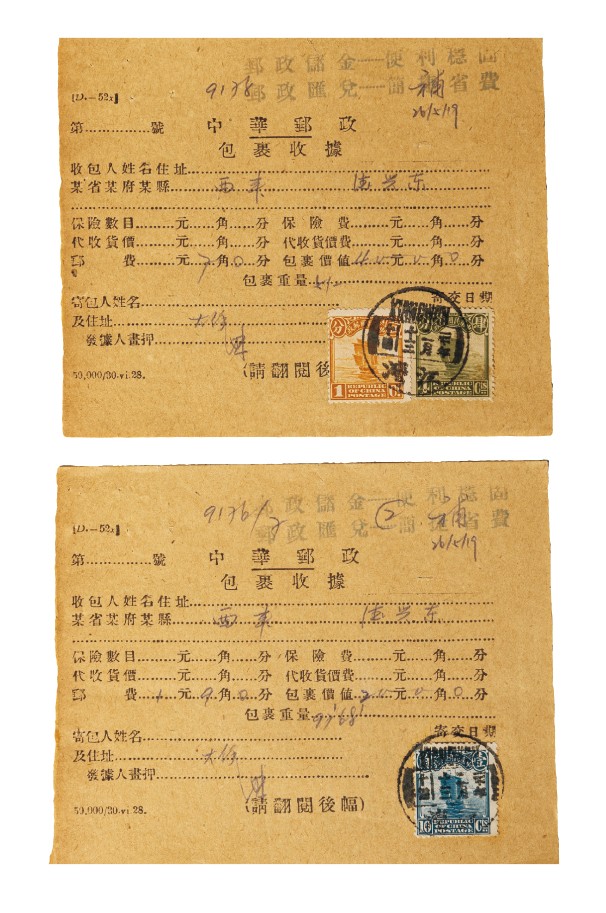 郵政儲金——便利穩固
郵政匯兌——簡捷省費
[D.—52x]
9138
補
26/5/19
第..............號
中華郵政
包裹收據
收包人姓名住址
某省某府某縣
保險數目........元......角......分 保險費........元......角......分
代收貨價........元......角......分 代收貨價費........元......角......分
郵費........元 7 角 0 分 包裹價値........元......角 0 分
包裹重量
寄包人姓名
寄交日期
及住址
發據人畫押
(請翻閱後
50,000/30.vi.28.
1 REPUBLIC OF CHINA POSTAGE
REPUBLIC OF CHINA POSTAGE CS
郵政儲金——便利穩固
郵政匯兌——簡捷省費
[D.—52x]
9136/7
②
26/5/19
第..............號
中華郵政
包裹收據
收包人姓名住址
某省某府某縣
保險數目........元......角......分 保險費........元......角......分
代收貨價........元......角......分 代收貨價費........元......角......分
郵費 1 元 9 角 0 分 包裹價値........元......角 0 分
包裹重量
寄包人姓名
寄交日期
及住址
發據人畫押
(請翻閱後幅)
50,000/30.vi.28.
10 REPUBLIC OF CHINA POSTAGE CS